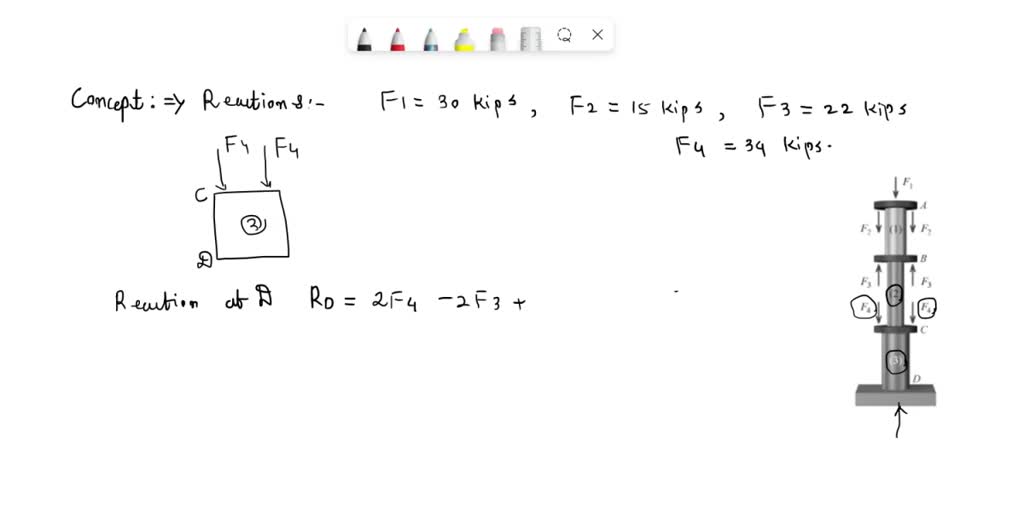 Concept: => Reactions:- F1 = 30 kips, F2 = 15 kips, F3 = 22 kips
F4 = 34 kips.
F4 F4
C
3
D
Reaction at D RD = 2F4 - 2F3 +
F1
A
F2 (1) F2
B
F3 F3
(2)
F4 F4
C
(3)
D